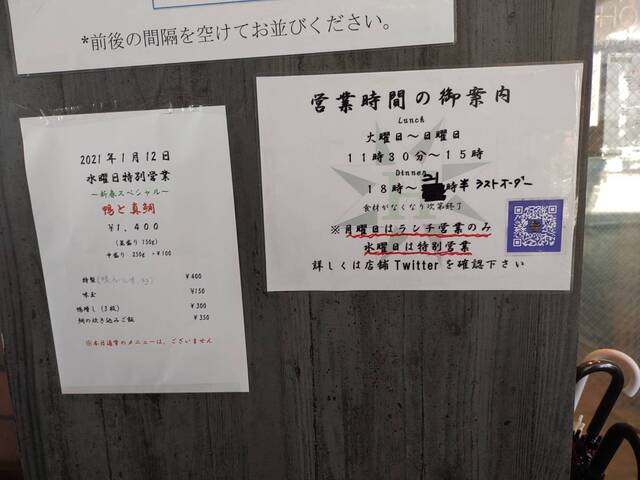 *前後の間隔を空けてお並びください。
2021年1月12日
水曜日特別営業
～新春スペシャル～
鴨と真鯛
¥1,400
(並盛り 150g)
中盛り 250g +¥100
特製 ¥400
味玉 ¥150
鴨増し(3枚) ¥300
鯛の炊き込みご飯 ¥350
※本日通常のメニューは、ございません
営業時間の御案内
Lunch
火曜日～日曜日
11時30分～15時
Dinner
18時～21時半 ラストオーダー
食材がなくなり次第終了
※月曜日はランチ営業のみ
水曜日は特別営業
詳しくは店舗Twitterを確認下さい